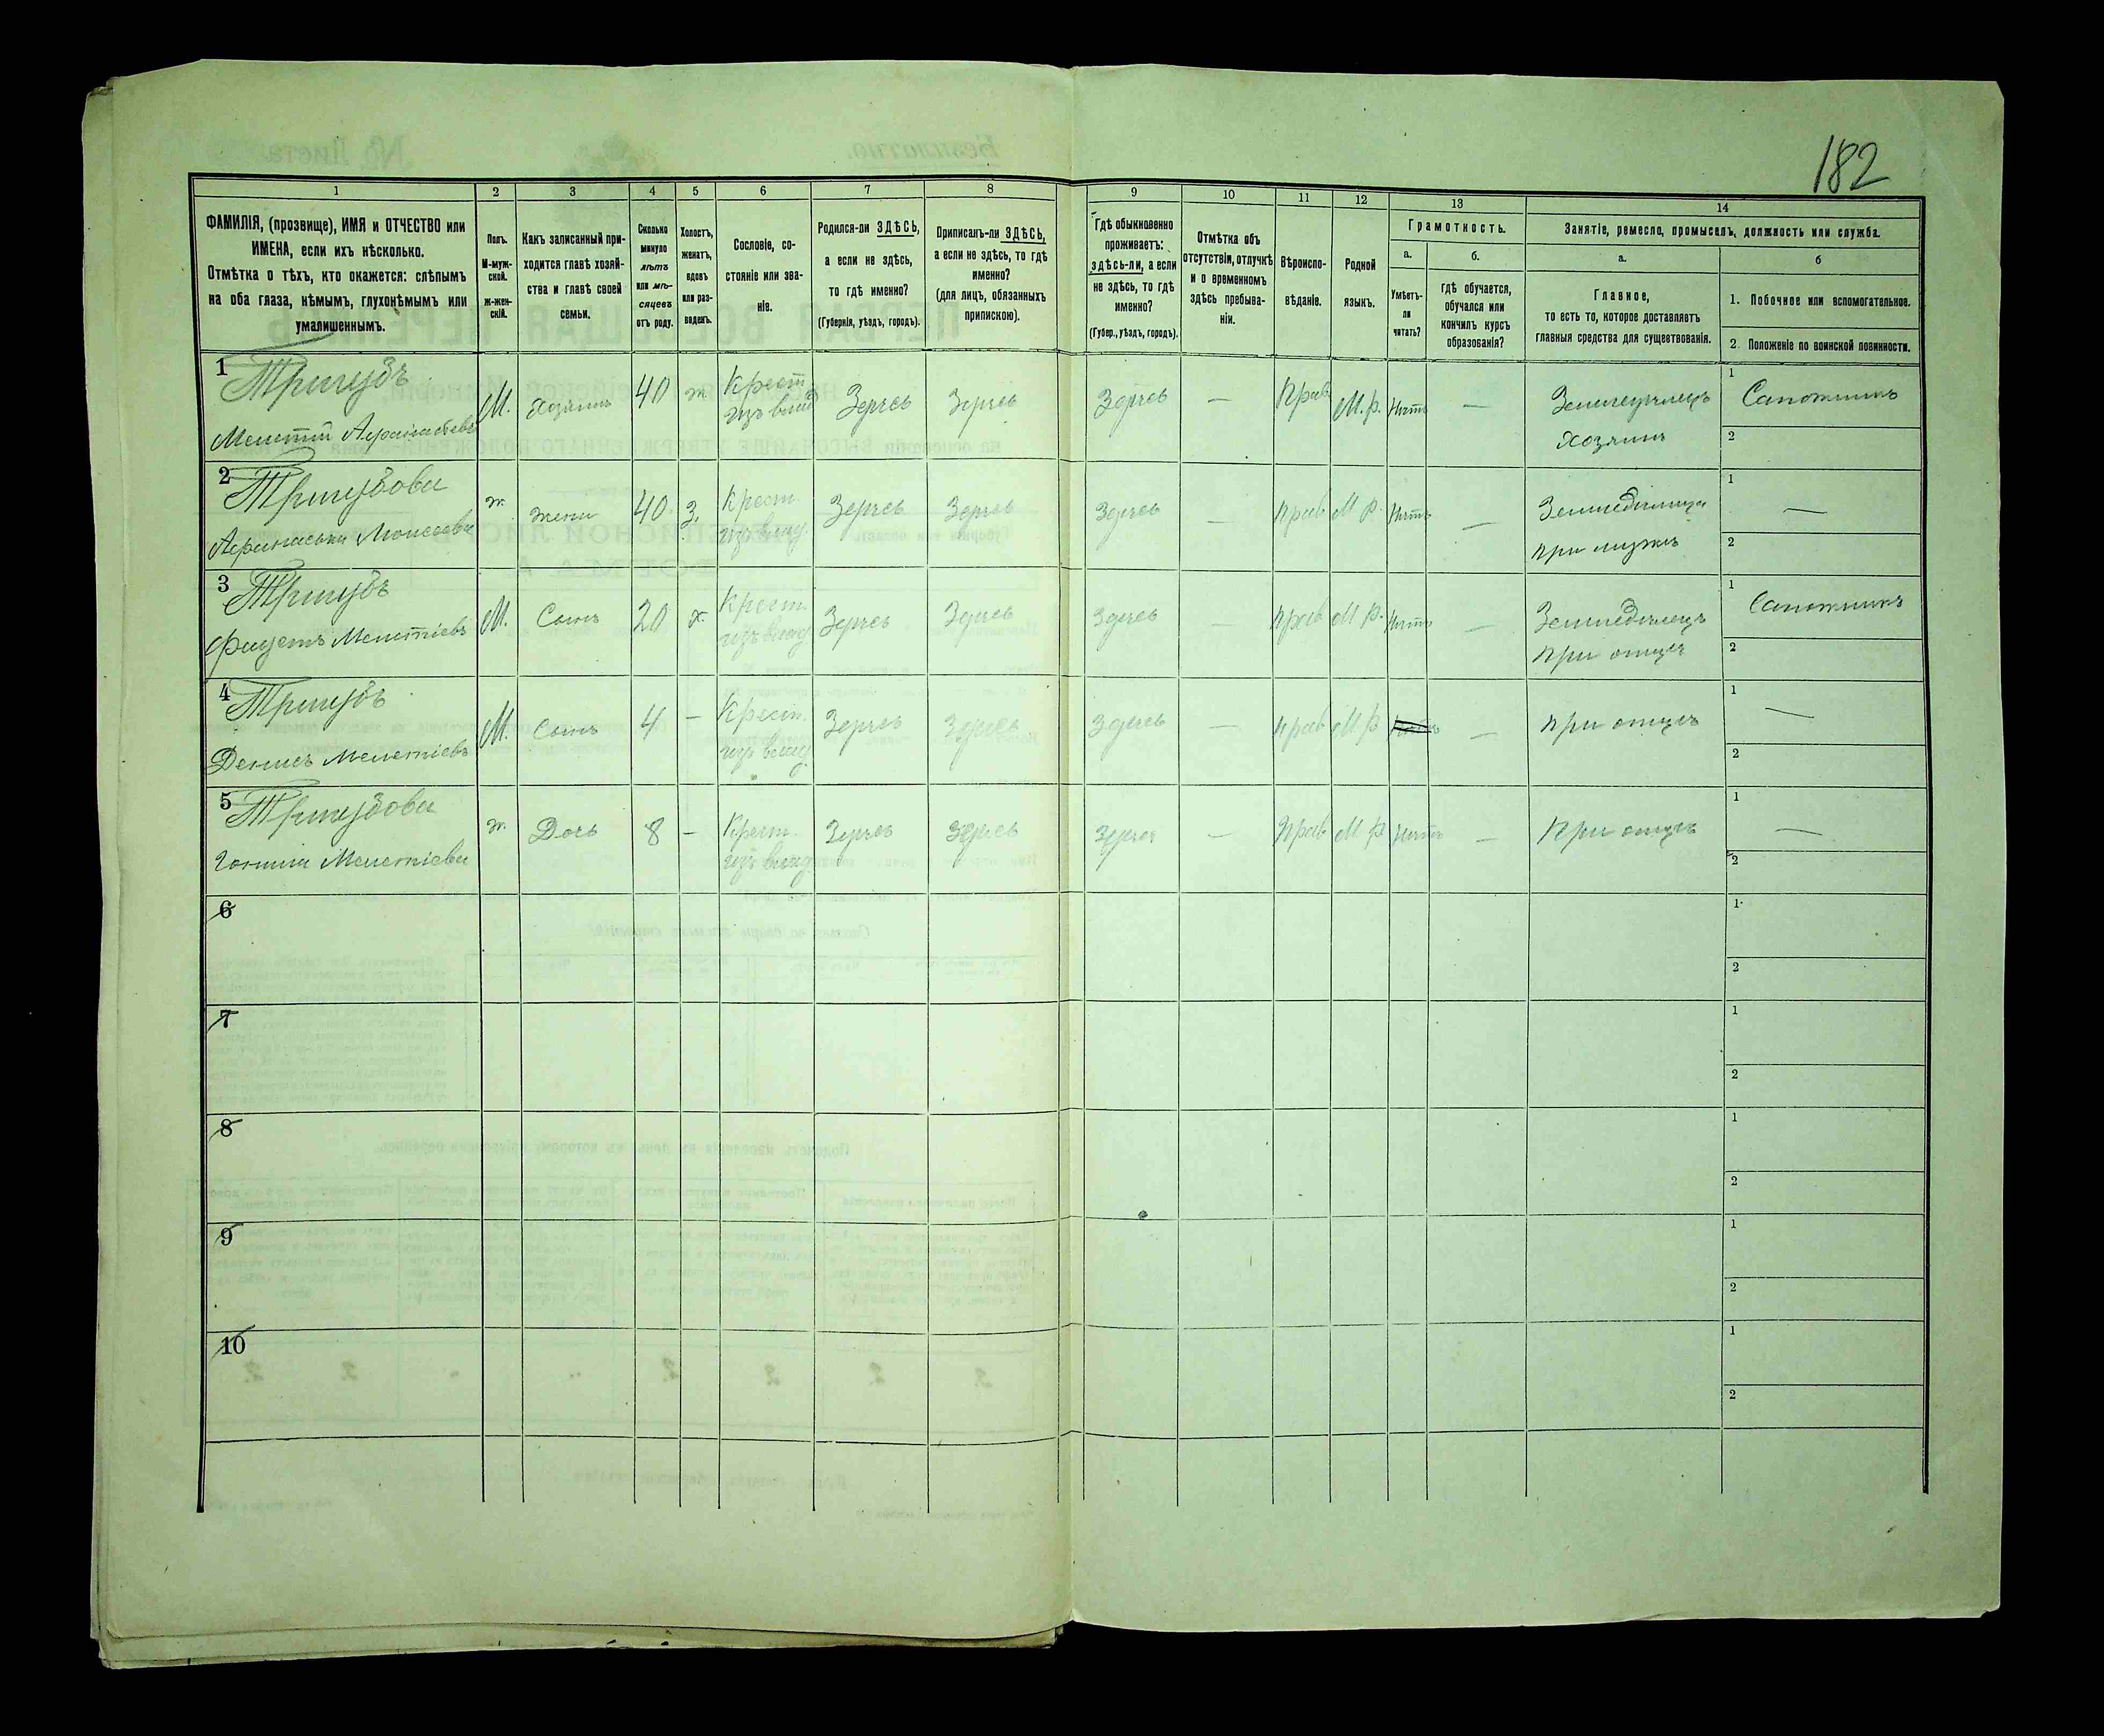 182
1 2 3 4 5 6 7 8 9 10 11 12 13 14
ФАМИЛІЯ, (прозвище), ИМЯ и ОТЧЕСТВО или
ИМЕНА, если ихъ нѣсколько.
Отмѣтка о тѣхъ, кто окажется: слѣпымъ
на оба глаза, нѣмымъ, глухонѣмымъ или
умалишеннымъ.
Полъ.
М-муж-
ской.
ж-жен-
скій.
Какъ записанный при-
ходится главѣ хозяй-
ства и главѣ своей
семьи.
Сколько
минуло
лѣтъ
или мѣ-
сяцевъ
отъ роду.
Холостъ,
женатъ,
вдовъ
или раз-
веденъ.
Сословіе, со-
стояніе или зва-
ніе.
Родился-ли ЗДѢСЬ,
а если не здѣсь,
то гдѣ именно?
(Губернія, уѣздъ, городъ).
Приписанъ-ли ЗДѢСЬ,
а если не здѣсь, то гдѣ
именно?
(для лицъ, обязанныхъ
припискою).
Гдѣ обыкновенно
проживаетъ:
здѣсь-ли, а если
не здѣсь, то гдѣ
именно?
(Губер., уѣздъ, городъ).
Отмѣтка объ
отсутствіи, отлучкѣ
и о временномъ
здѣсь пребыва-
ніи.
Вѣроиспо-
вѣданіе.
Родной
языкъ.
Грамотность.
а.
Умѣетъ-
ли
читать?
б.
гдѣ обучается,
обучался или
кончилъ курсъ
образованія?
Занятіе, ремесло, промыселъ, должность или служба.
а.
Главное,
то есть то, которое доставляетъ
главныя средства для существованія.
б
1. Побочное или вспомогательное.
2. Положеніе по воинской повинности.
1 Тригубъ
Мелетій Афанасьевъ
М. Хозяинъ 40 ж Крест. изъ влад Здѣсь Здѣсь Здѣсь — Прав М.р. Нѣтъ — Земледѣлецъ
Хозяинъ
1 Сапожникъ
2
2 Тригубова
Моисеева
ж. жена 40 З. Крест. изъ влад. Здѣсь Здѣсь Здѣсь — Прав М.р. Нѣтъ —
при мужѣ
1 —
2
3 Тригубъ
Мелетіевъ
М. Сынъ 20 х. Крест. изъ влад. Здѣсь Здѣсь Здѣсь — Прав М.р. Нѣтъ — Земледѣлецъ
при отцѣ
1 Сапожникъ
2
4 Тригубъ
Денисъ Мелетіевъ
М. Сынъ 4 — Крест. изъ влад. Здѣсь Здѣсь Здѣсь — Прав М.р. — при отцѣ
1 —
2
5 Тригубова
Мелетіева
ж. Дочь 8 — Крест. изъ влад. Здѣсь Здѣсь Здѣсь — Прав М.р. Нѣтъ — При отцѣ
1 —
2
6
1
2
7
1
2
8
1
2
9
1
2
10
1
2